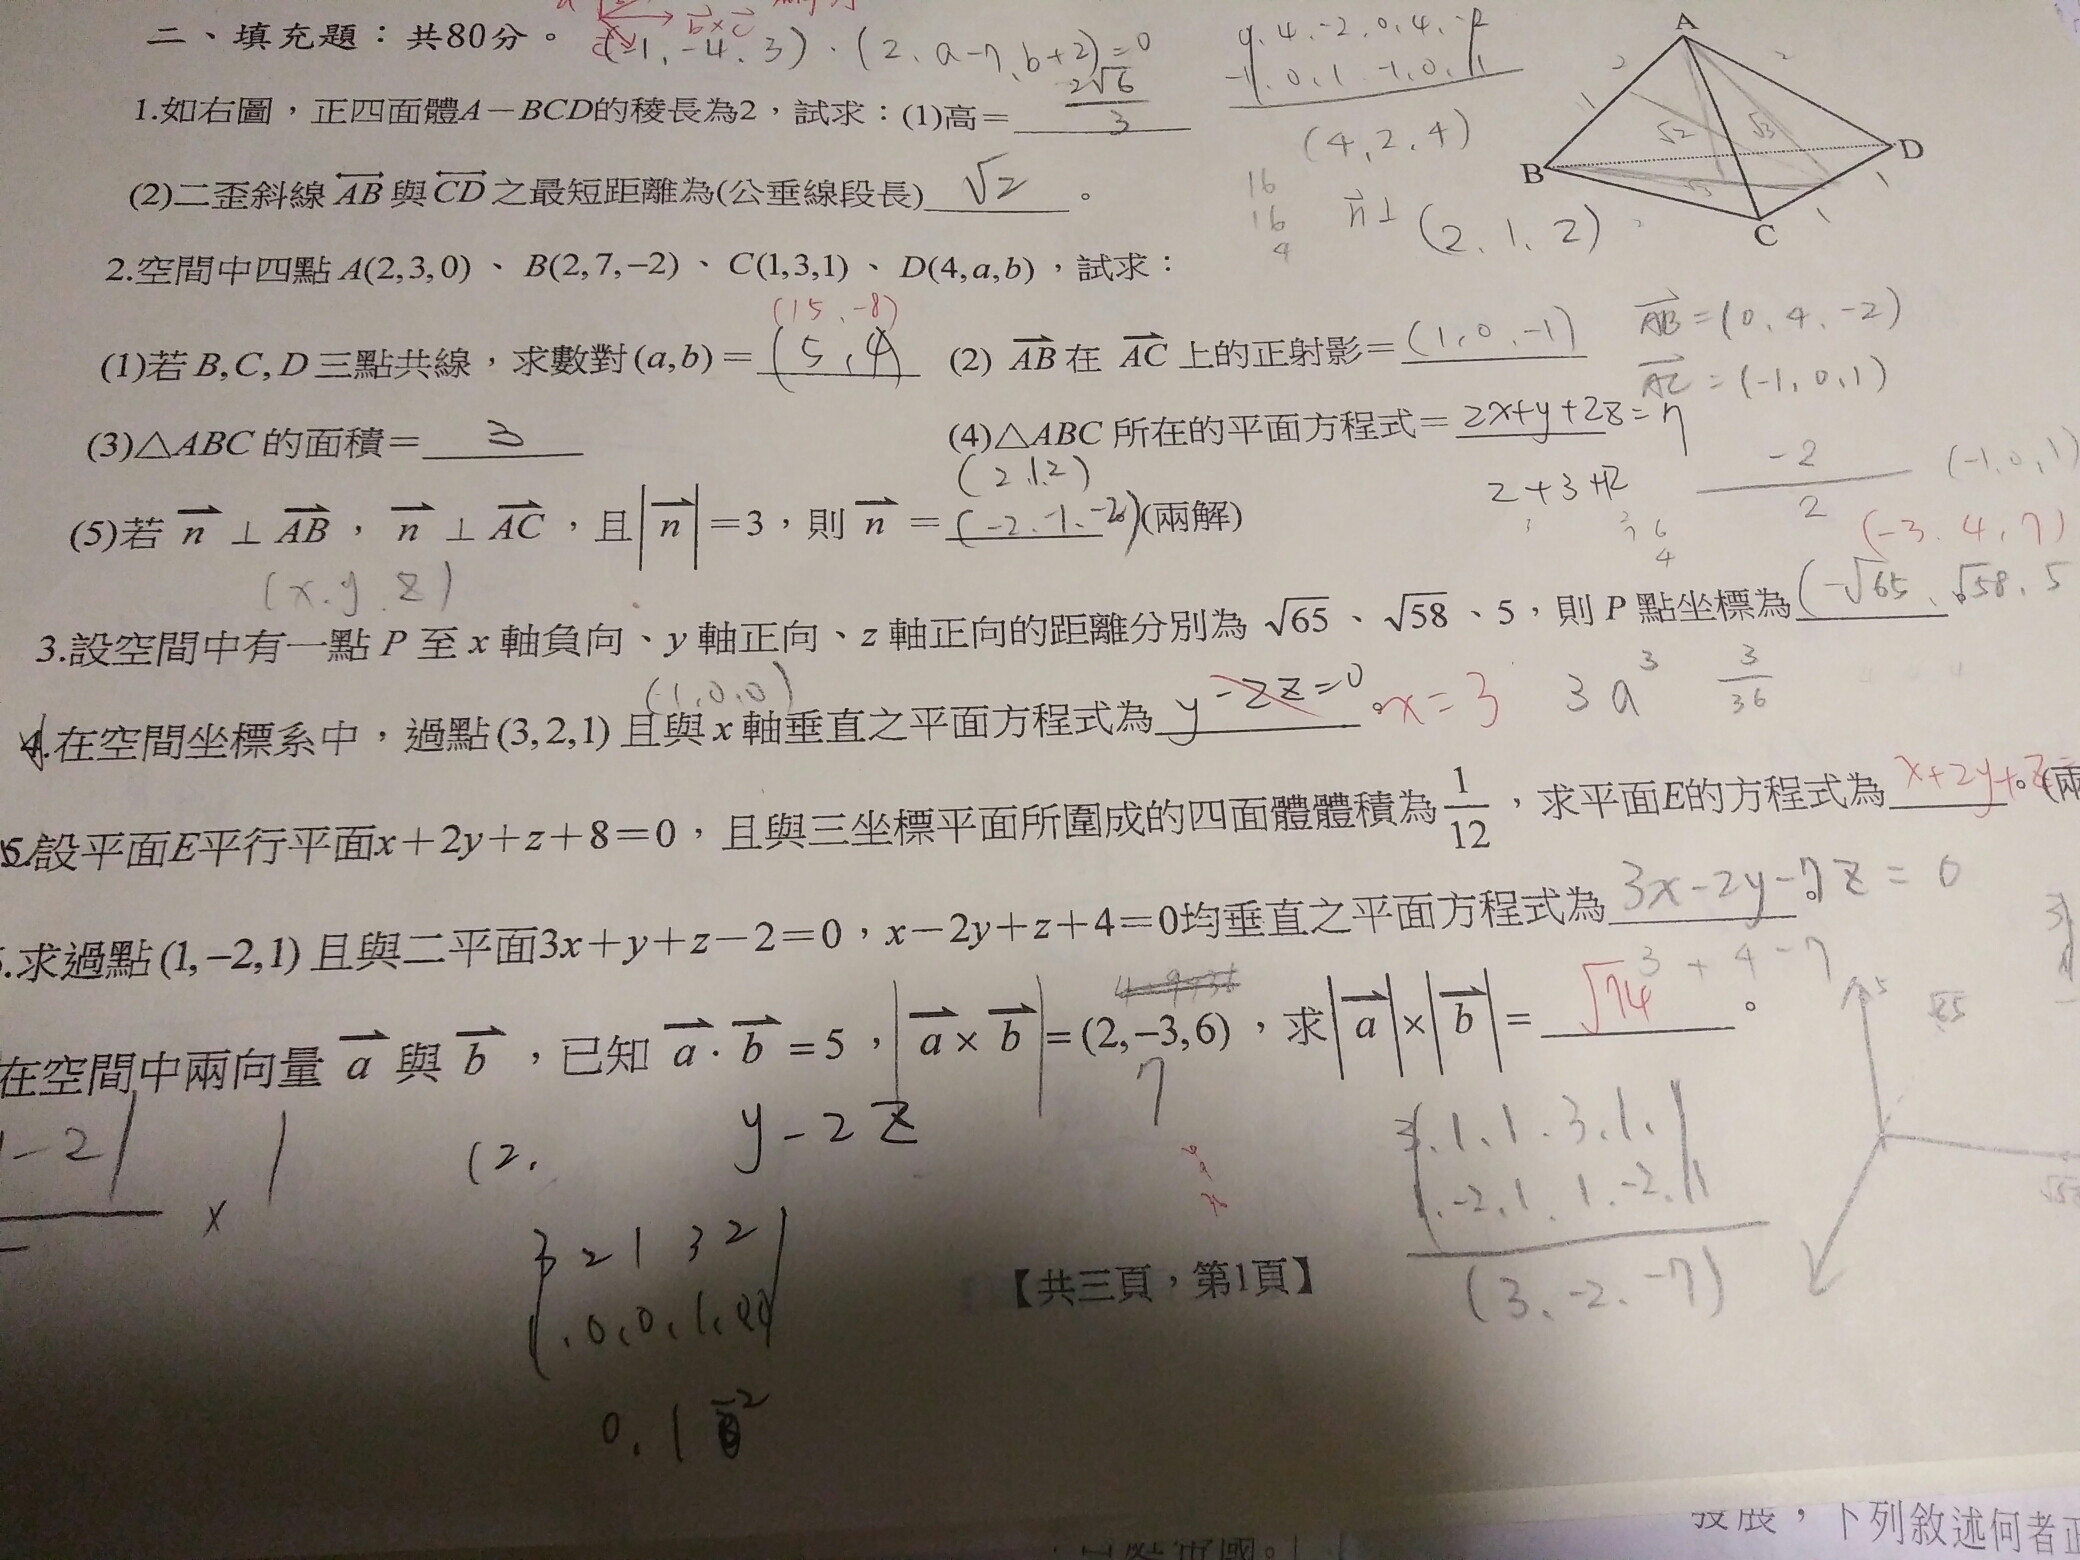 二、填充題：共80分。 (-1,-4,3)·(2,a-7,b+2)=0
b×c
1.如右圖，正四面體A－BCD的稜長為2，試求：(1)高＝ 2√6/3
(4,2,4)
A
B
C
D
(2)二歪斜線 AB 與 CD 之最短距離為(公垂線段長) √2 。
16
16
4
n⊥(2,1,2)
2.空間中四點 A(2,3,0) 、 B(2,7,−2) 、 C(1,3,1) 、 D(4,a,b)，試求：
(15,-8)
(1)若 B,C,D 三點共線，求數對 (a,b)＝ (5,4) (2) AB 在 AC 上的正射影＝ (1,0,-1)
AB=(0,4,-2)
AC=(-1,0,1)
(3)△ABC 的面積＝ 3 (4)△ABC 所在的平面方程式＝ 2x+y+2z=7
2+3+2
-2/2 (-1,0,1)
(2,1,2)
(5)若 n ⊥ AB ， n ⊥ AC ，且 |n|＝3，則 n ＝ (-2,-1,-2) (兩解)
(x,y,z)
(-3,4,7)
3.設空間中有一點 P 至 x 軸負向、y 軸正向、z 軸正向的距離分別為 √65 、 √58 、5，則 P 點坐標為 (-√65,√58,5
(-1,0,0)
4.在空間坐標系中，過點 (3,2,1) 且與 x 軸垂直之平面方程式為 y-2z=0 。 x=3
3a³ 3/36
5.設平面E平行平面x＋2y＋z＋8＝0，且與三坐標平面所圍成的四面體體積為 1/12 ，求平面E的方程式為 x+2y+z 。(兩
.求過點 (1,−2,1) 且與二平面3x＋y＋z－2＝0，x－2y＋z＋4＝0均垂直之平面方程式為 3x-2y-7z=0
3+4-7
在空間中兩向量 a 與 b ，已知 a · b ＝5， |a × b|＝(2,−3,6)，求 |a|×|b|＝ √74 。
7
y-2z
(2,
-2 × 1
3,1,1,3,1,1
1,-2,1,1,-2,1
(3,-2,-7)
3 2 1 3 2
0,1 -2
【共三頁，第1頁】
發展，下列敘述何者正